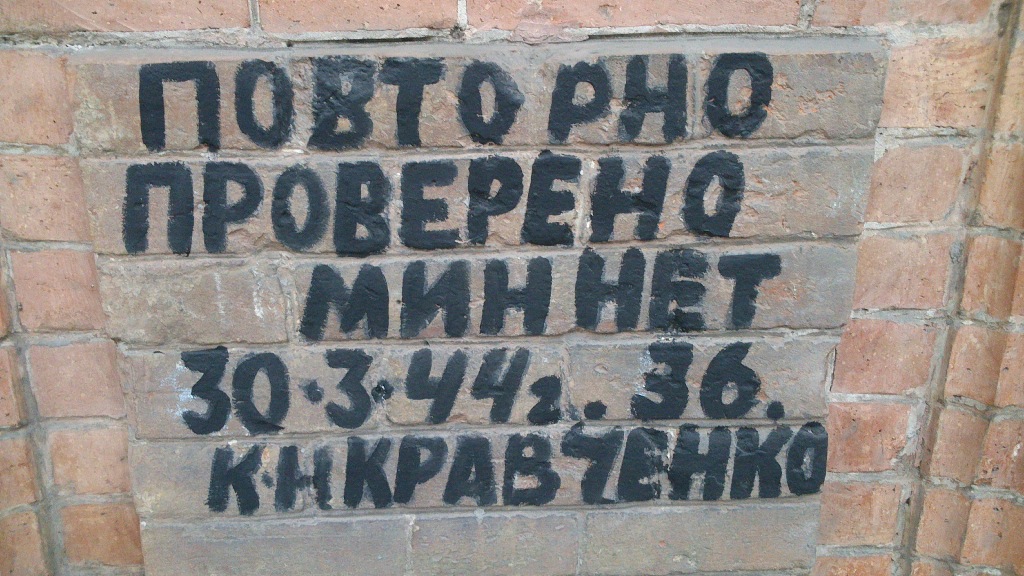 ПОВТОРНО
ПРОВЕРЕНО
МИН НЕТ
30·3·44г. 36.
К·Н КРАВЧЕНКО